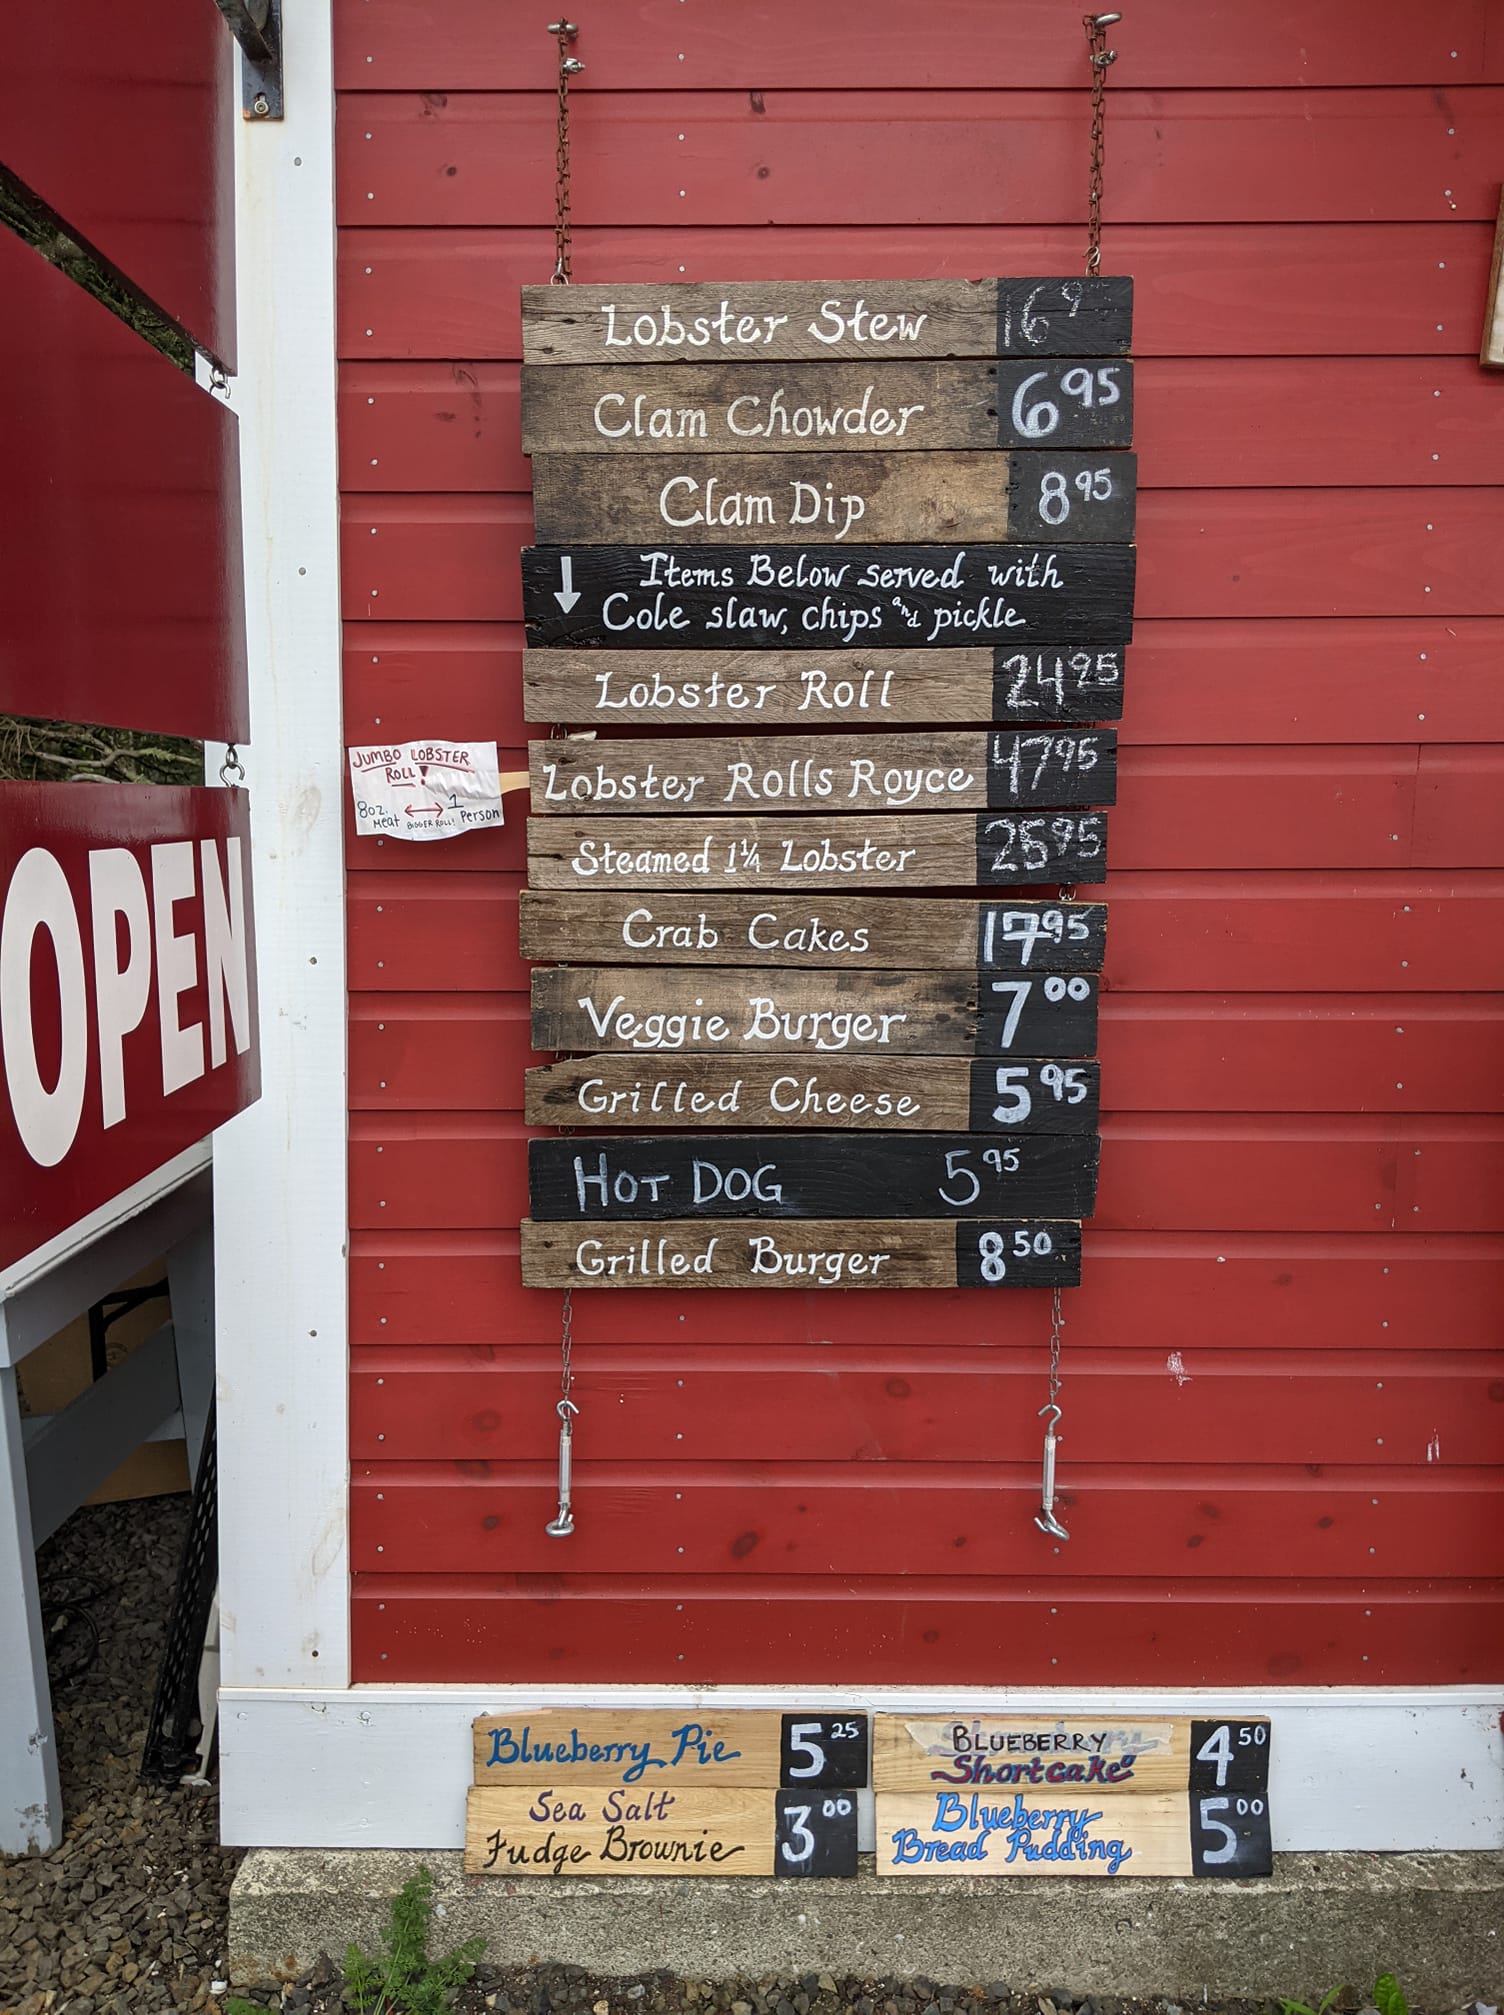 Lobster Stew 16 9
Clam Chowder 6 95
Clam Dip 8 95
↓ Items Below served with
Cole slaw, chips and pickle
Lobster Roll 24 95
JUMBO LOBSTER
ROLL!
8oz. Meat ↔ 1 Person
BIGGER ROLL!
Lobster Rolls Royce 47 95
Steamed 1 1/4 Lobster 25 95
Crab Cakes 17 95
Veggie Burger 7 00
Grilled Cheese 5 95
HOT DOG 5 95
Grilled Burger 8 50
OPEN
Blueberry Pie 5 25
Sea Salt
Fudge Brownie 3 00
BLUEBERRY
Shortcake 4 50
Blueberry
Bread Pudding 5 00